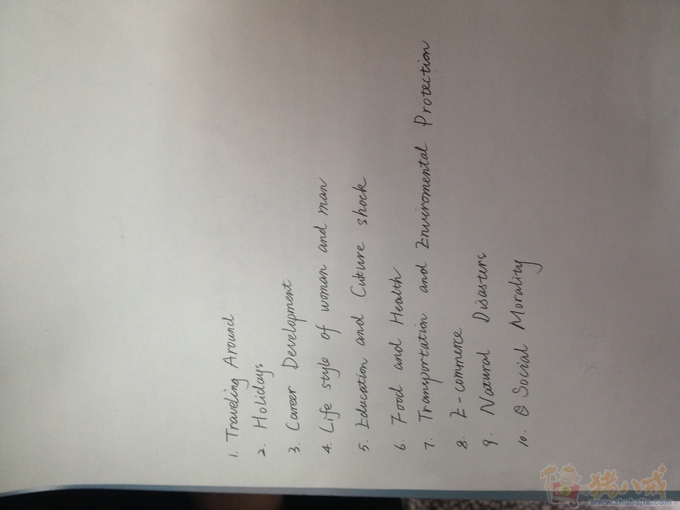 1. Traveling Around
2. Holidays
3. Career Development
4. Life style of woman and man
5. Education and Cuture shock
6. Food and Health
7. Transportation and Enviromental Protection
8. E-commerce
9. Natural Disasters
10. Social Morality
猪八戒
www.zhubajie.com